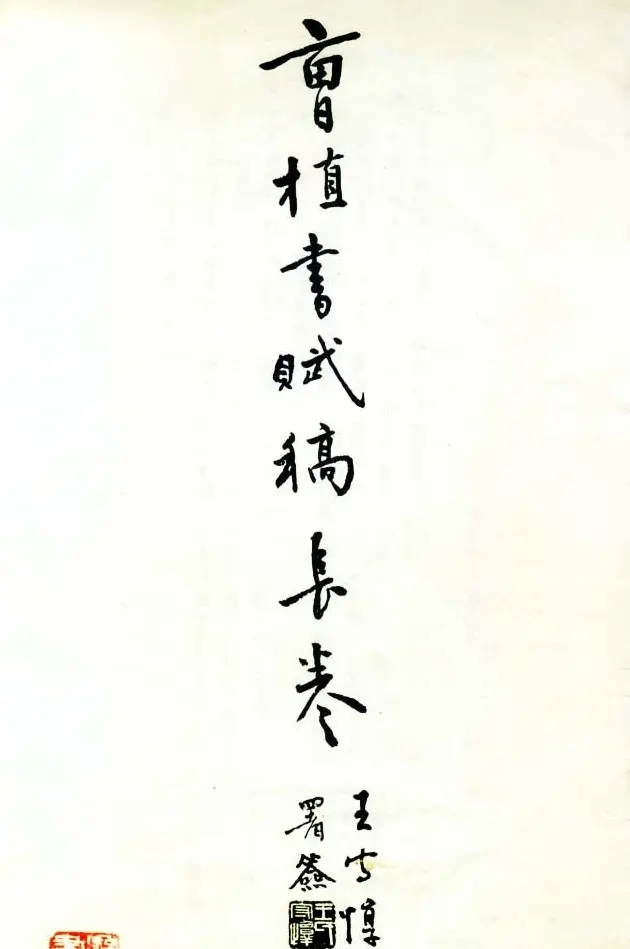 曹植書賦稿長卷
王守惇
署簽